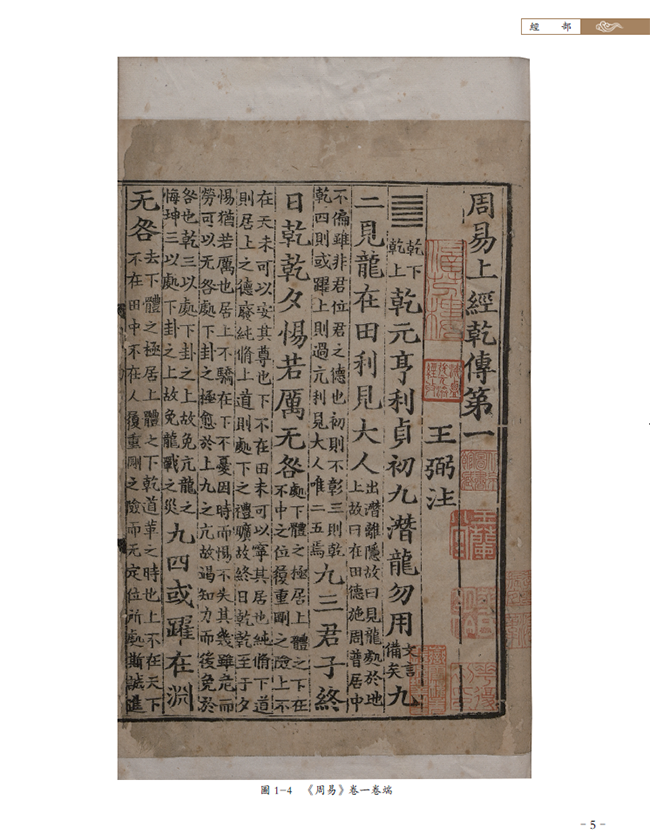 經 部
周易上經乾傳第一
王弼注
䷀乾下乾上乾元亨利貞初九潛龍勿用文言備矣九
二見龍在田利見大人出潛離隱故曰見龍處於地上故曰在田德施周普居中
不偏雖非君位君之德也初則不彰三則乾乾四則或躍上則過亢利見大人唯二五焉九三君子終
日乾乾夕惕若厲无咎處下體之極居上體之下在不中之位履重剛之險上不
在天未可以安其尊也下不在田未可以寧其居也純脩下道則居上之德廢純脩上道則處下之禮曠故終日乾乾至于夕
惕猶若厲也居上不驕在下不憂因時而惕不失其幾雖危而勞可以无咎處下卦之極愈於上九之亢故竭知力而後免於
咎也乾三以處下卦之上故免亢龍之悔坤三以處下卦之上故免龍戰之災九四或躍在淵
无咎去下體之極居上體之下乾道革之時也上不在天下不在田中不在人履重剛之險而无定位所處斯誠進
圖 1-4 《周易》卷一卷端
- 5 -